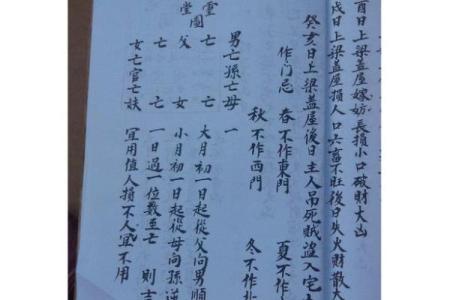 酉日上梁盖屋嫁妨長損小口破財大凶
戌日上梁盖屋損人口六畜不旺後日失火財散大
癸亥日上梁盖屋後日主人吊死賊盜入宅大
作门忌 春不作東門 夏不作
秋不作西門 冬不作
靈堂圖
男亡孫亡母一
亡 亡 大月初一日起從父向男順
父 女 小月初一日起從母向孫逆
亡 亡 一日過一位数至亡 則吉
女亡官亡妹 宜用值人損不人宜不用